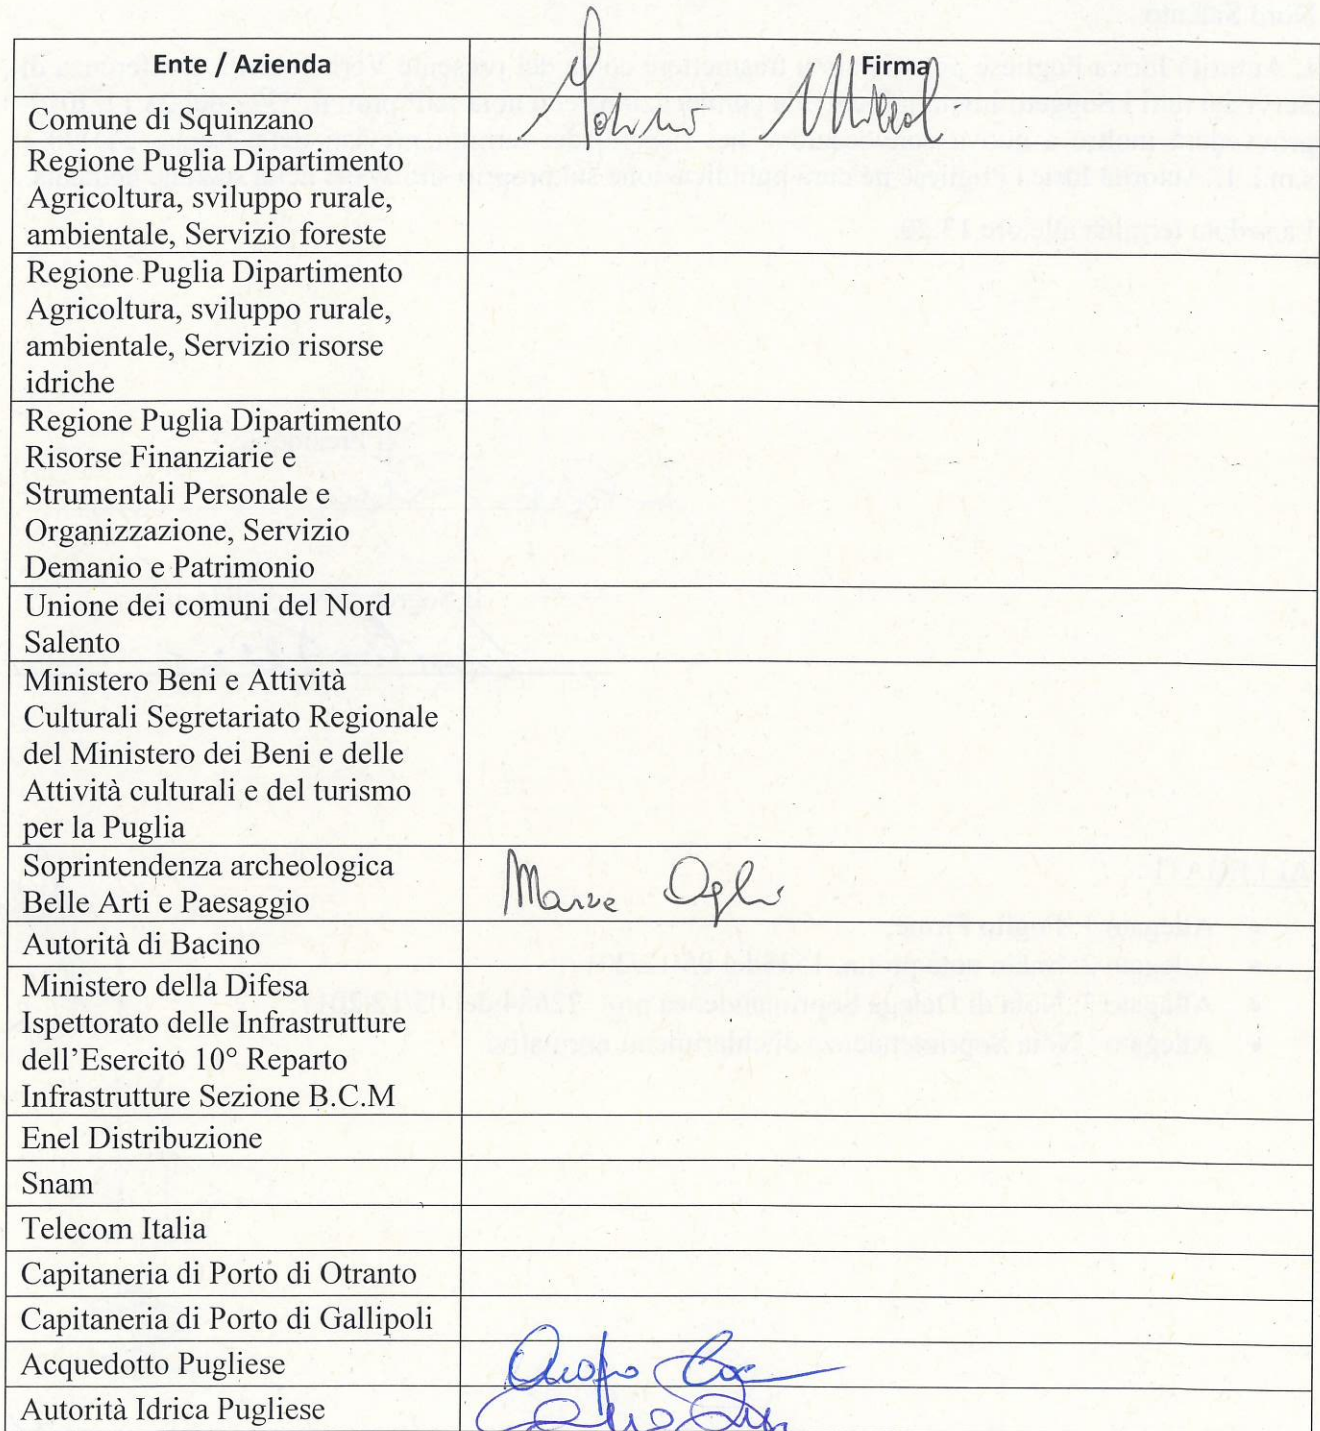 Ente / Azienda Firma
Comune di Squinzano
Regione Puglia Dipartimento
Agricoltura, sviluppo rurale,
ambientale, Servizio foreste
Regione Puglia Dipartimento
Agricoltura, sviluppo rurale,
ambientale, Servizio risorse
idriche
Regione Puglia Dipartimento
Risorse Finanziarie e
Strumentali Personale e
Organizzazione, Servizio
Demanio e Patrimonio
Unione dei comuni del Nord
Salento
Ministero Beni e Attività
Culturali Segretariato Regionale
del Ministero dei Beni e delle
Attività culturali e del turismo
per la Puglia
Soprintendenza archeologica
Belle Arti e Paesaggio
Autorità di Bacino
Ministero della Difesa
Ispettorato delle Infrastrutture
dell’Esercito 10° Reparto
Infrastrutture Sezione B.C.M
Enel Distribuzione
Snam
Telecom Italia
Capitaneria di Porto di Otranto
Capitaneria di Porto di Gallipoli
Acquedotto Pugliese
Autorità Idrica Pugliese